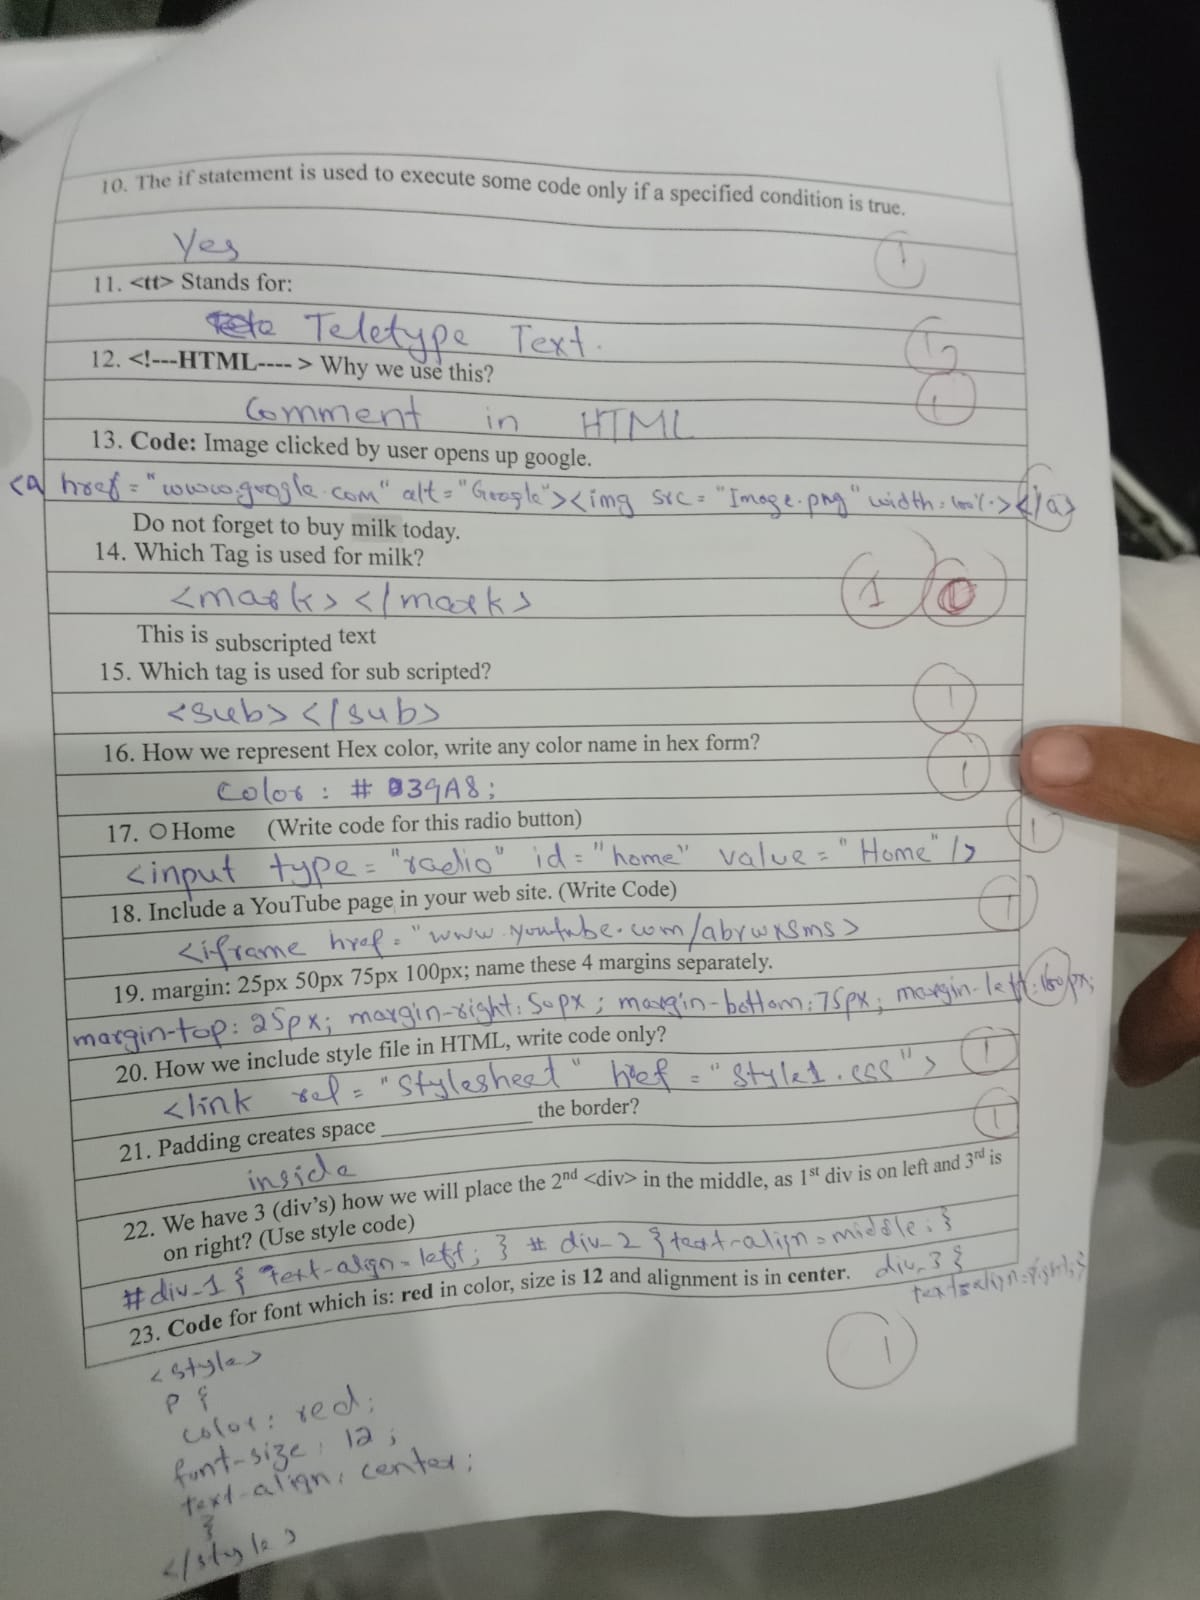 10. The if statement is used to execute some code only if a specified condition is true.
Yes
1
11. <tt> Stands for:
Teletype Text.
1
12. <!---HTML---- > Why we use this?
1
Comment in HTML
13. Code: Image clicked by user opens up google.
<a href="www.google.com" alt="Google"><img src="Image.png" width=100%></a>
Do not forget to buy milk today.
14. Which Tag is used for milk?
<mark></mark>
1
This is subscripted text
15. Which tag is used for sub scripted?
<sub></sub>
1
16. How we represent Hex color, write any color name in hex form?
Color: #039A8;
1
17. O Home (Write code for this radio button)
1
<input type="radio" id="home" value="Home"/>
18. Include a YouTube page in your web site. (Write Code)
1
<iframe href="www.youtube.com/abrwxsms>
19. margin: 25px 50px 75px 100px; name these 4 margins separately.
margin-top: 25px; margin-right: 50px; margin-bottom: 75px; margin-left: 100px;
20. How we include style file in HTML, write code only?
1
<link rel="Stylesheet" href="Style1.css">
21. Padding creates space ______________ the border?
1
inside
22. We have 3 (div's) how we will place the 2nd <div> in the middle, as 1st div is on left and 3rd is
on right? (Use style code)
#div_1 { text-align=left; } # div_2 { text-align=middle; }
div_3 {
text-align=right; }
23. Code for font which is: red in color, size is 12 and alignment is in center.
1
<style>
p {
color: red;
font-size: 12;
text-align: center;
}
</style>